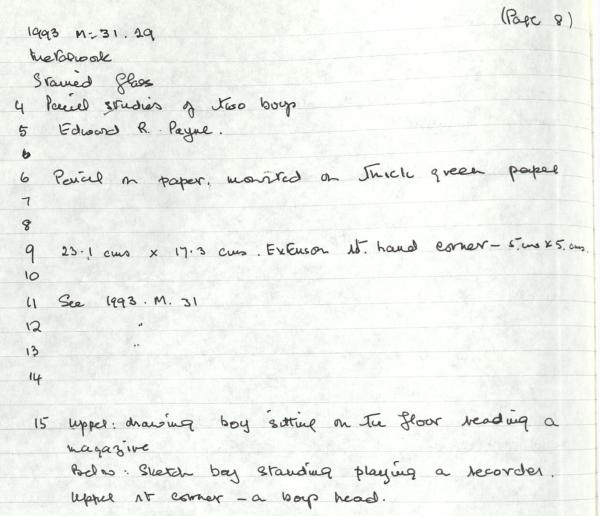 (Page 8)
1993 M. 31. 29
Metalwork
Stained Glass
4 Pencil studies of two boys
5 Edward R. Payne.
6
6 Pencil on paper, mounted on thick green paper
7
8
9 23.1 cms x 17.3 cms. Extension rt. hand corner - 5. cms x 5. cms.
10
11 See 1993. M. 31
12 "
13 "
14
15 Upper: drawing boy sitting on the floor reading a
magazine
Below: Sketch boy standing playing a recorder.
Upper rt corner - a boys head.